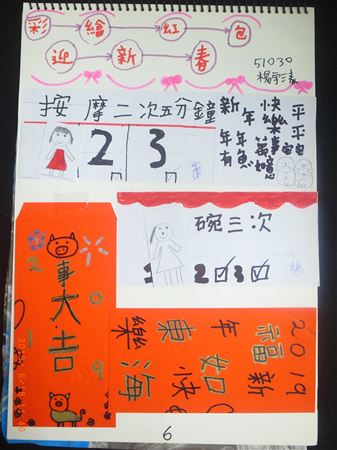 彩繪紅包
迎新春
51030
按摩二次五分鐘
2 3
新年快樂
平平
年年有魚
碗三次
2 3
事大吉
2019
2019
福新
年如
東快
樂海
6